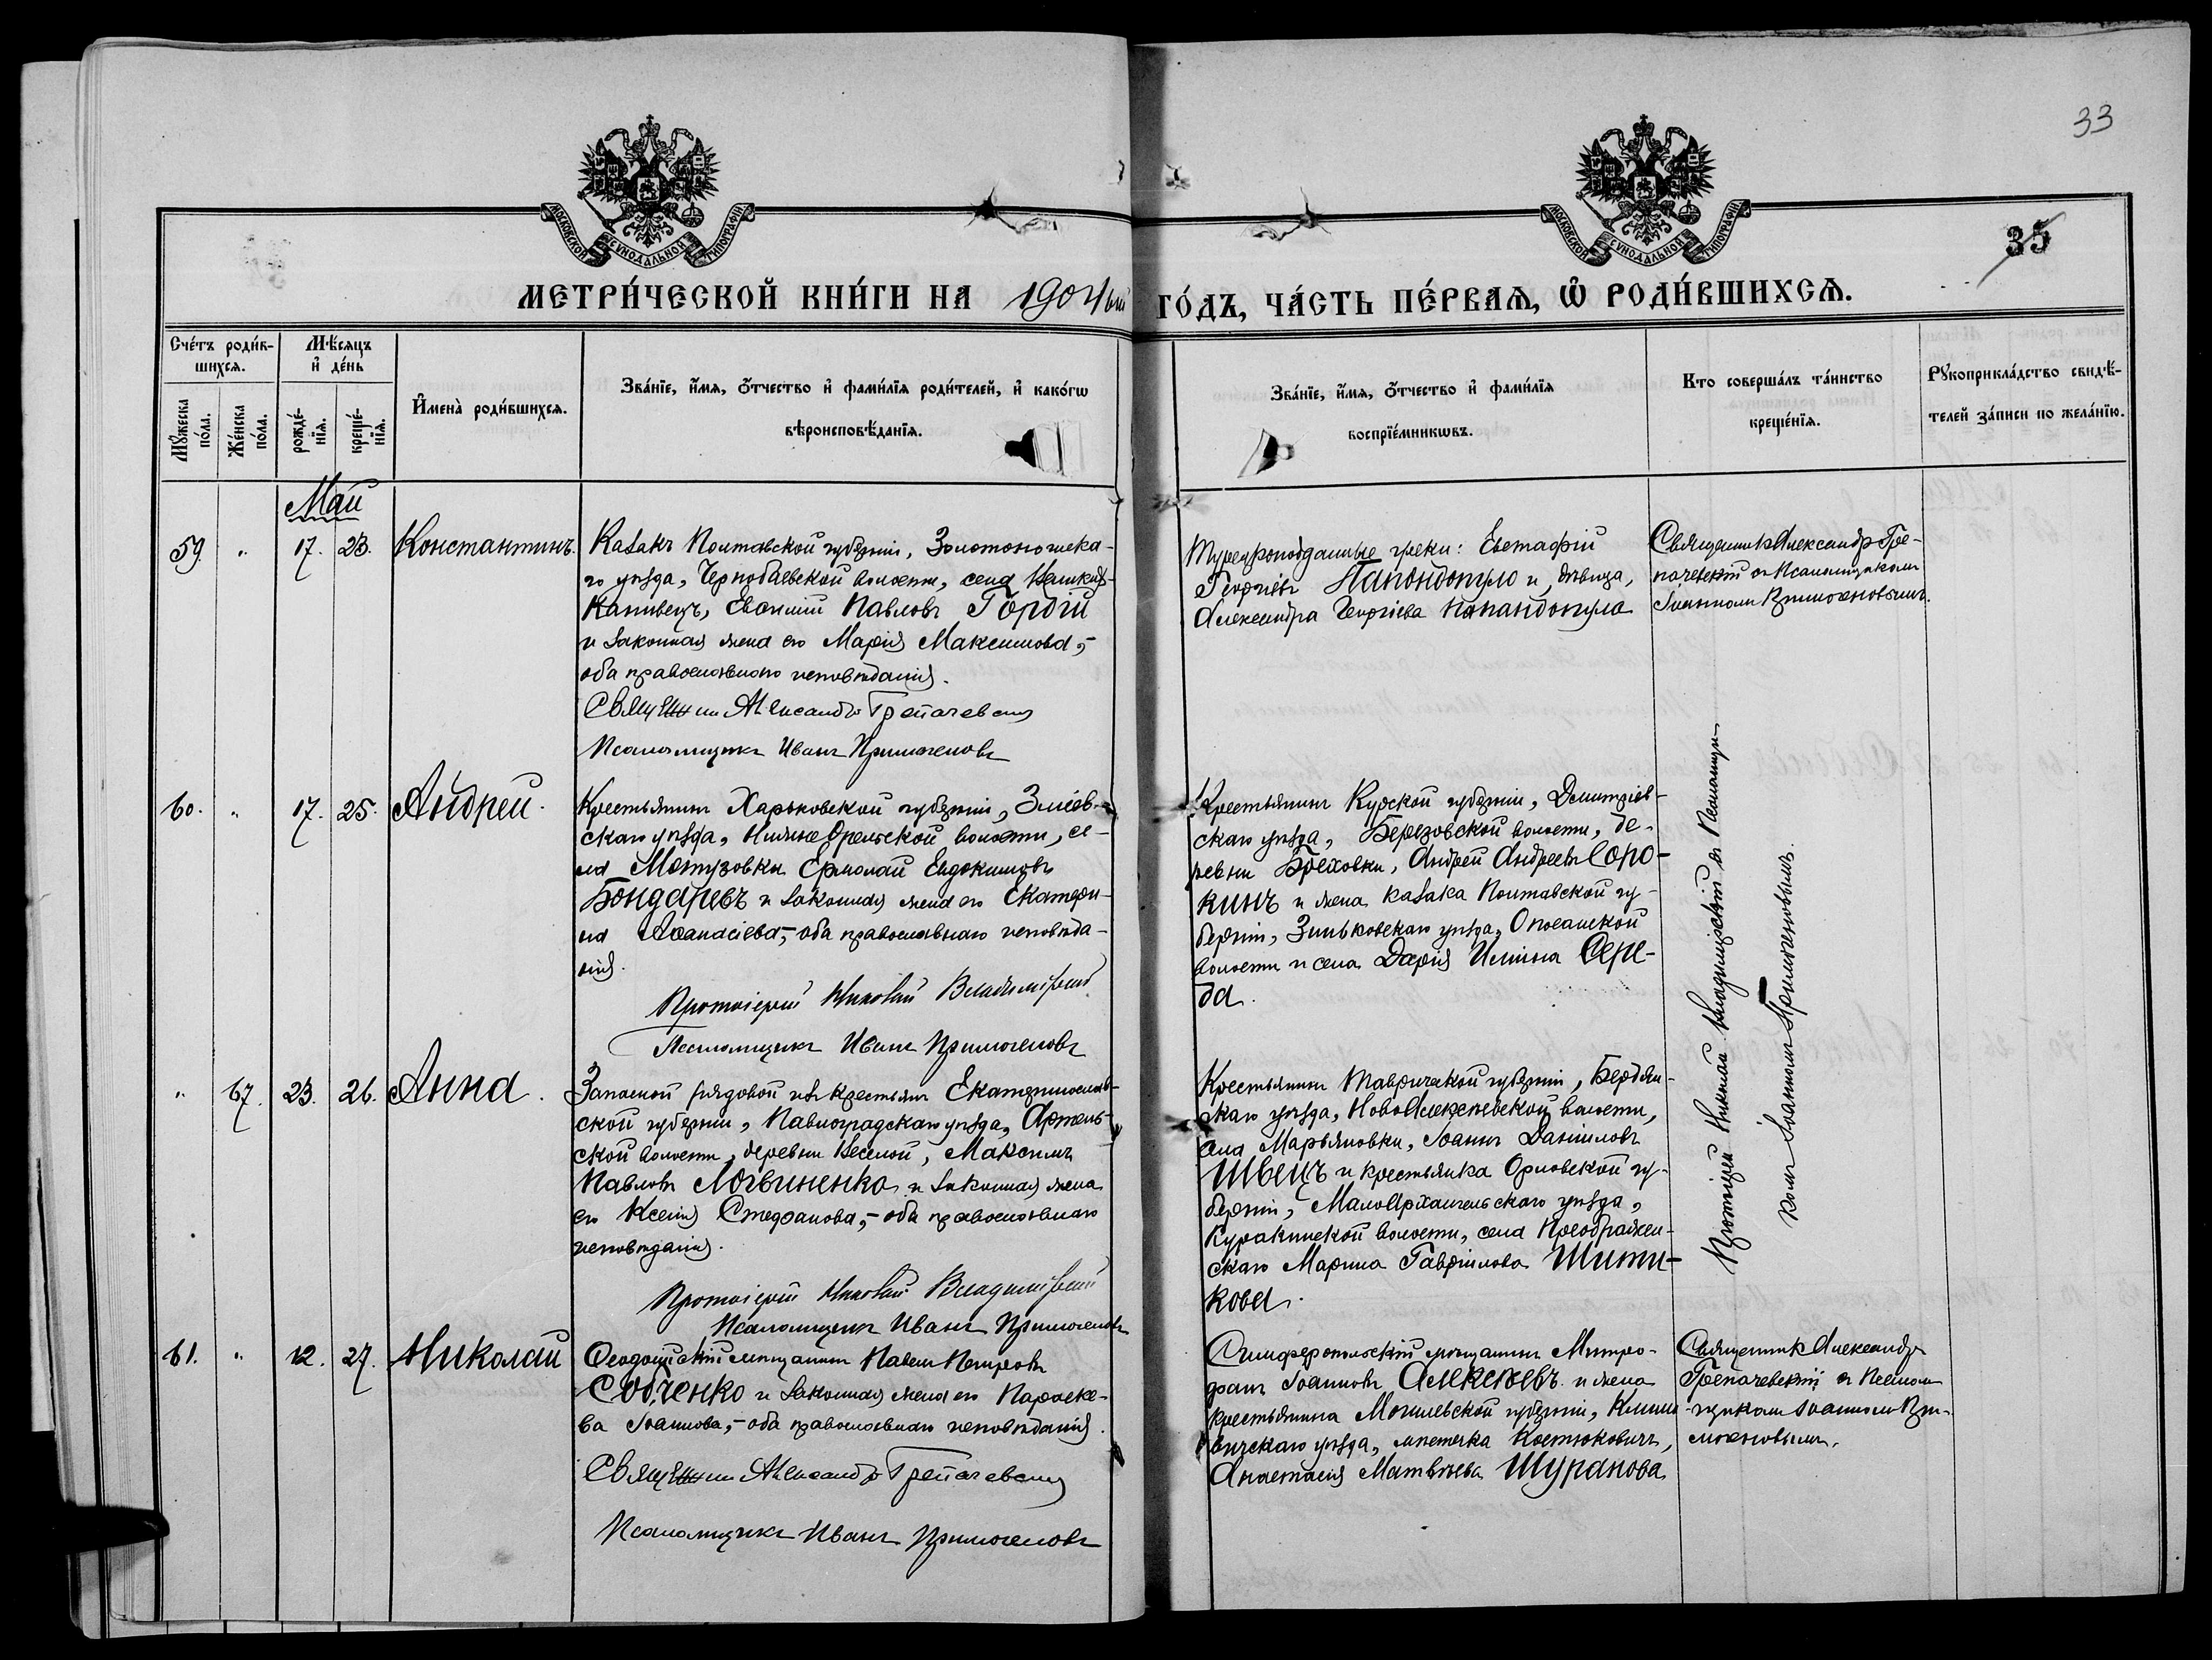 33
35
МОСКОВСКОЙ СѴНОДАЛЬНОЙ ТИПОГРАФІИ
МОСКОВСКОЙ СѴНОДАЛЬНОЙ ТИПОГРАФІИ
МЕТРИ́ЧЕСКОЙ КНИ́ГИ НА 1904 ый ГО́ДЪ, ЧА́СТЬ ПЕ́РВАѦ, Ѽ РОДИ́ВШИХСѦ.
Сче́тъ роди́в-
шихсѧ.
Мꙋ́жеска по́ла.
Же́нска по́ла.
Мѣ́сѧцъ и҆ де́нь
рожде́-
нїѧ.
креще́-
нїѧ.
И҆мена̀ роди́вшихсѧ.
Зва́нїе, и҆́мѧ, ѻ҆́тчество и҆ фами́лїѧ роди́телей, и҆ како́гѡ
вѣроисповѣ́данїѧ.
Зва́нїе, и҆́мѧ, ѻ҆́тчество и҆ фами́лїѧ
воспрїе́мникѡвъ.
Кто соверша́лъ та́инство
креще́нїѧ.
Рꙋкоприкла́дство свидѣ́-
телей за́писи по жела́нїю.
Май
59. " 17. 23. Константинъ.
Казакъ Полтавской губерніи, Золотоношска-
го уѣзда, Чернобаевской волости, села
Капивецъ, Евѳимій Павловъ Гордій
и законная жена его Марія Максимова,-
оба православнаго исповѣданія.
Священник Александр Грепачевский
Псаломщикъ Иванъ Примогеновъ
Турецкоподданные греки: Евстафій
Георгіевъ Папондопуло и дѣвица,
Александра Георгіева Папандопуло
Священникъ Александръ Гре-
пачевскій съ Псаломщикомъ
Іоанномъ Примогеновымъ.
60. " 17. 25. Андрей.
Крестьянинъ Харьковской губерніи, Зміев-
скаго уѣзда, Нижне Орельской волости, се-
ла Мотузовки Ермолай Евдокимовъ
Бондаревъ и законная жена его Екатери-
на Аѳанасіева,- оба православнаго исповѣда-
нія.
Протоіерей Николай Владимірскій
Псаломщикъ Иванъ Примогеновъ
Крестьянинъ Курской губерніи, Дмитріев-
скаго уѣзда, Березовской волости, де-
ревни Бреховки, Андрей Андреевъ Соро-
кинъ и жена казака Полтавской гу-
берніи, Зиньковскаго уѣзда, Опошанской
волости и села Дарія Ильина Сере-
да.
Протоіерей Николай Владимірскій съ Псаломщи-
комъ Іоанномъ Примогеновымъ.
" 67. 23. 26. Анна.
Запасной рядовой изъ крестьянъ Екатеринослав-
ской губерніи, Павлоградскаго уѣзда, Артель-
ской волости, деревни Веселой, Максимъ
Павловъ Логвиненко и законная жена
его Ксенія Стефанова,- оба православнаго
исповѣданія.
Протоіерей Николай Владимірскій
Псаломщикъ Иванъ Примогеновъ
Крестьянинъ Таврической губерніи, Бердян-
скаго уѣзда, НовоАлексѣевской волости,
села Марьяновки, Іоаннъ Даниловъ
Швецъ и крестьянка Орловской гу-
берніи, МалоАрхангельскаго уѣзда,
Куракинской волости, села Преображен-
скаго Марина Гавріилова Шити-
кова.
61. " 12. 27. Николай
Ѳеодосійскій мѣщанинъ Павелъ Петровъ
Собченко и законная жена его Параске-
ва Іоаннова,- оба православнаго исповѣданія.
Священник Александр Грепачевский
Псаломщикъ Иванъ Примогеновъ
Симферопольскій мѣщанинъ Митро-
фанъ Іоанновъ Алексѣевъ и жена
крестьянина Могилевской губерніи, Климо-
вичскаго уѣзда, мѣстечка Костюковичъ,
Анастасія Матвѣева Шуранова
Священникъ Александръ
Грепачевскій съ Псалом-
щикомъ Іоанномъ При-
могеновымъ.